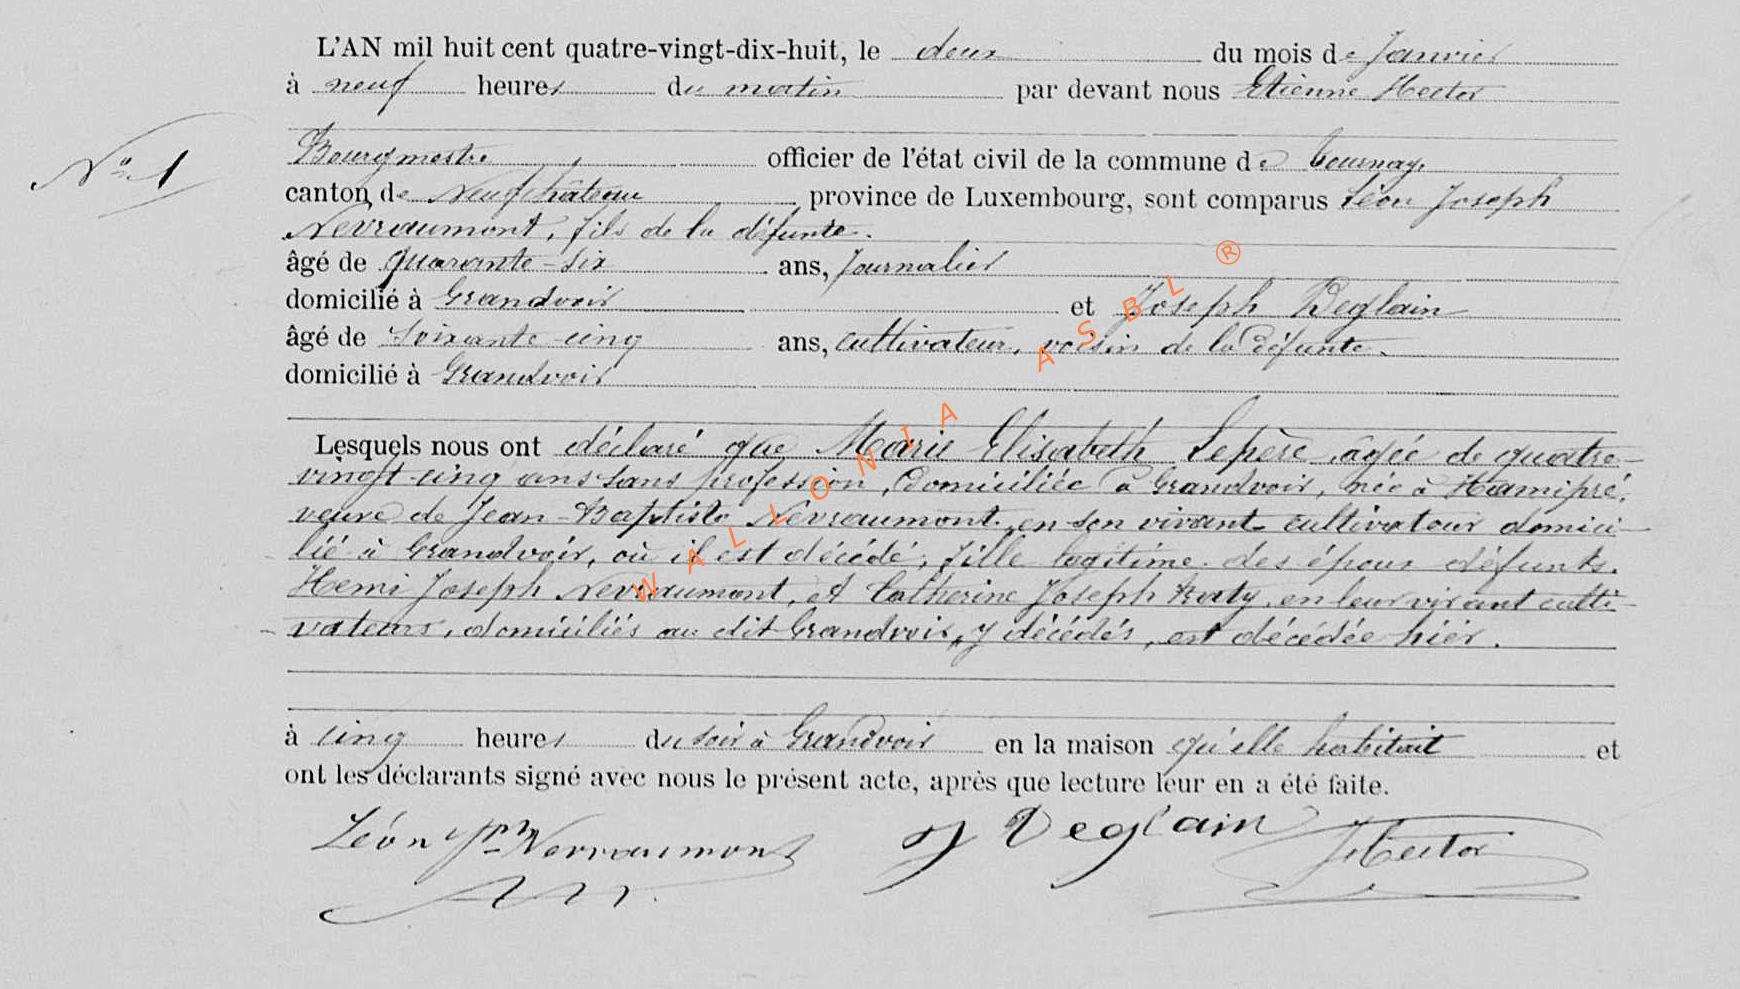 L'AN mil huit cent quatre-vingt-dix-huit, le deux du mois de Janvier
à neuf heures du matin par devant nous Etienne Hector
Bourgmestre, officier de l'état civil de la commune de Tournay,
N° 1
canton de Neufchâteau province de Luxembourg, sont comparus Léon Joseph
Nevraumont, fils de la défunte.
âgé de quarante-six ans, Journalier
domicilié à Grandvoir et Joseph Deglain
âgé de soixante-cinq ans, cultivateur, voisin de la défunte.
domicilié à Grandvoir
Lesquels nous ont déclaré que Marie Elisabeth Lepère, âgée de quatre-
vingt-cinq ans sans profession, domiciliée à Grandvoir, née à Hamipré,
veuve de Jean-Baptiste Nevraumont, en son vivant cultivateur domici-
lié à Grandvoir, où il est décédé, fille légitime des époux défunts.
Henri Joseph Nevraumont, et Catherine Joseph Baty, en leur vivant culti-
vateurs, domiciliés au dit Grandvoir, y décédés, est décédée hier.
à cinq heures du soir à Grandvoir en la maison qu'elle habitait et
ont les déclarants signé avec nous le présent acte, après que lecture leur en a été faite.
Léon Jph Nevraumont J Deglain Hector
WALLONIA ASBL ®